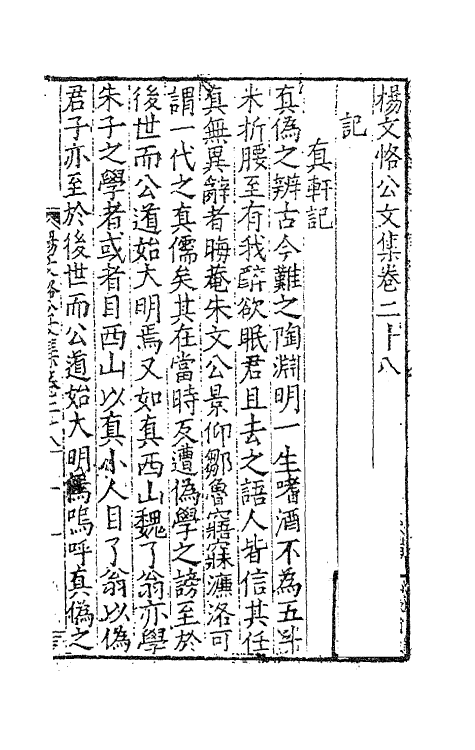 楊文恪公文集卷二十八
記
真軒記
真偽之辨古今難之陶淵明一生嗜酒不為五斗
米折腰至有我醉欲眠君且去之語人皆信其任
真無異辭者晦菴朱文公景仰鄒魯寤寐濂洛可
謂一代之真儒矣其在當時反遭偽學之謗至於
後世而公道始大明焉又如真西山魏了翁亦學
朱子之學者或者目西山以真小人目了翁以偽
君子亦至於後世而公道始大明焉嗚呼真偽之